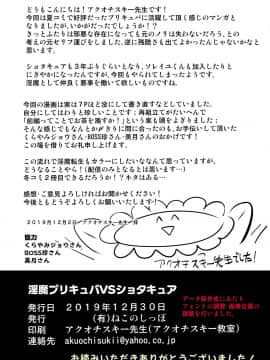 どうもこんにちは！アクオチスキー先生です！
今回は夏コミで好評だったプリキュパに活躍して頂く感じのマンガと
なりましたが、いかがだったでしょうか！？
きっとふたりは邪悪な存在になっても元のノリは失わないだろう、との
考えの元セリフ運びをしました。逆に残酷さも出てよかったんじゃないかなと
思います。
ショタキュアも3年ぶりぐらいとなり、ソレイユくんも加入したりと
にぎやかになったんですが、今回もやられてしまったようです。
淫魔として仲良く悪事を働いて欲しいものですね。
今回の漫画は実は7Pほど没にして書き直すなどしていました。
自分にしてはわりと珍しいことです；再組立てがたいへんで
「前編ってことでお茶を濁すか！」という案も頭をよぎりました；
そんな感じでもなんとか〆きりに間に合ったのも、お手伝いして頂いた
くらやみジョウさん・BOSS珍さん・美月さんのおかげです！
この場を借りてお礼申し上げます。
この流れで淫魔転生もカラーにしたいななんて思っていますが、
どうなることやら！（配信のみとなるとは思いますが…）
冬コミ2冊目できるだろうか！？キタはある…
感想・ご意見よろしければお聞かせください！
今後ともどうぞよろしくお願いいたします！
2019年12月2日 アクオチスキー先生 拝
協力
くらやみジョウさん
BOSS珍さん
美月さん
アクオチスキー先生でした！
淫魔プリキュパVSショタキュア
発行日 2019年12月30日
発行 (有)ねこのしっぽ
印刷 アクオチスキー先生(アクオチスキー教室)
連絡先 akuochisuki@yahoo.co.jp
データ制作にあたり
お読みいただきありがとうございました！